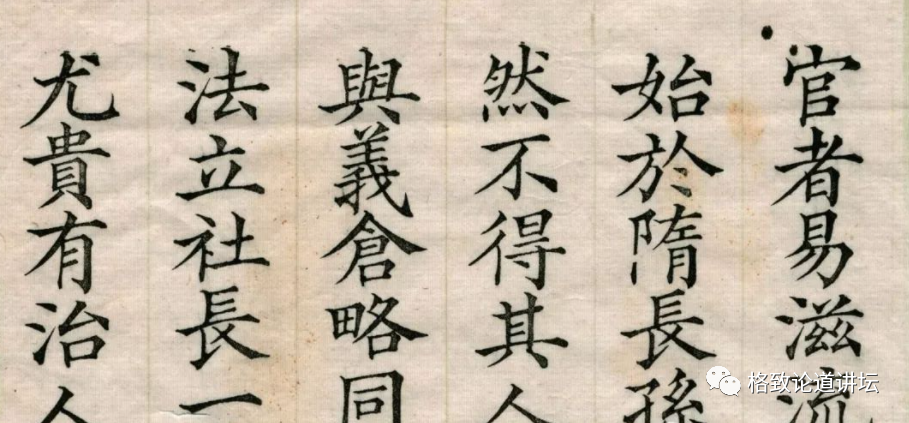 官者易滋流
始於隋長孫
然不得其人
與義倉略同
法立社長一
尤貴有治人
格致论道讲坛